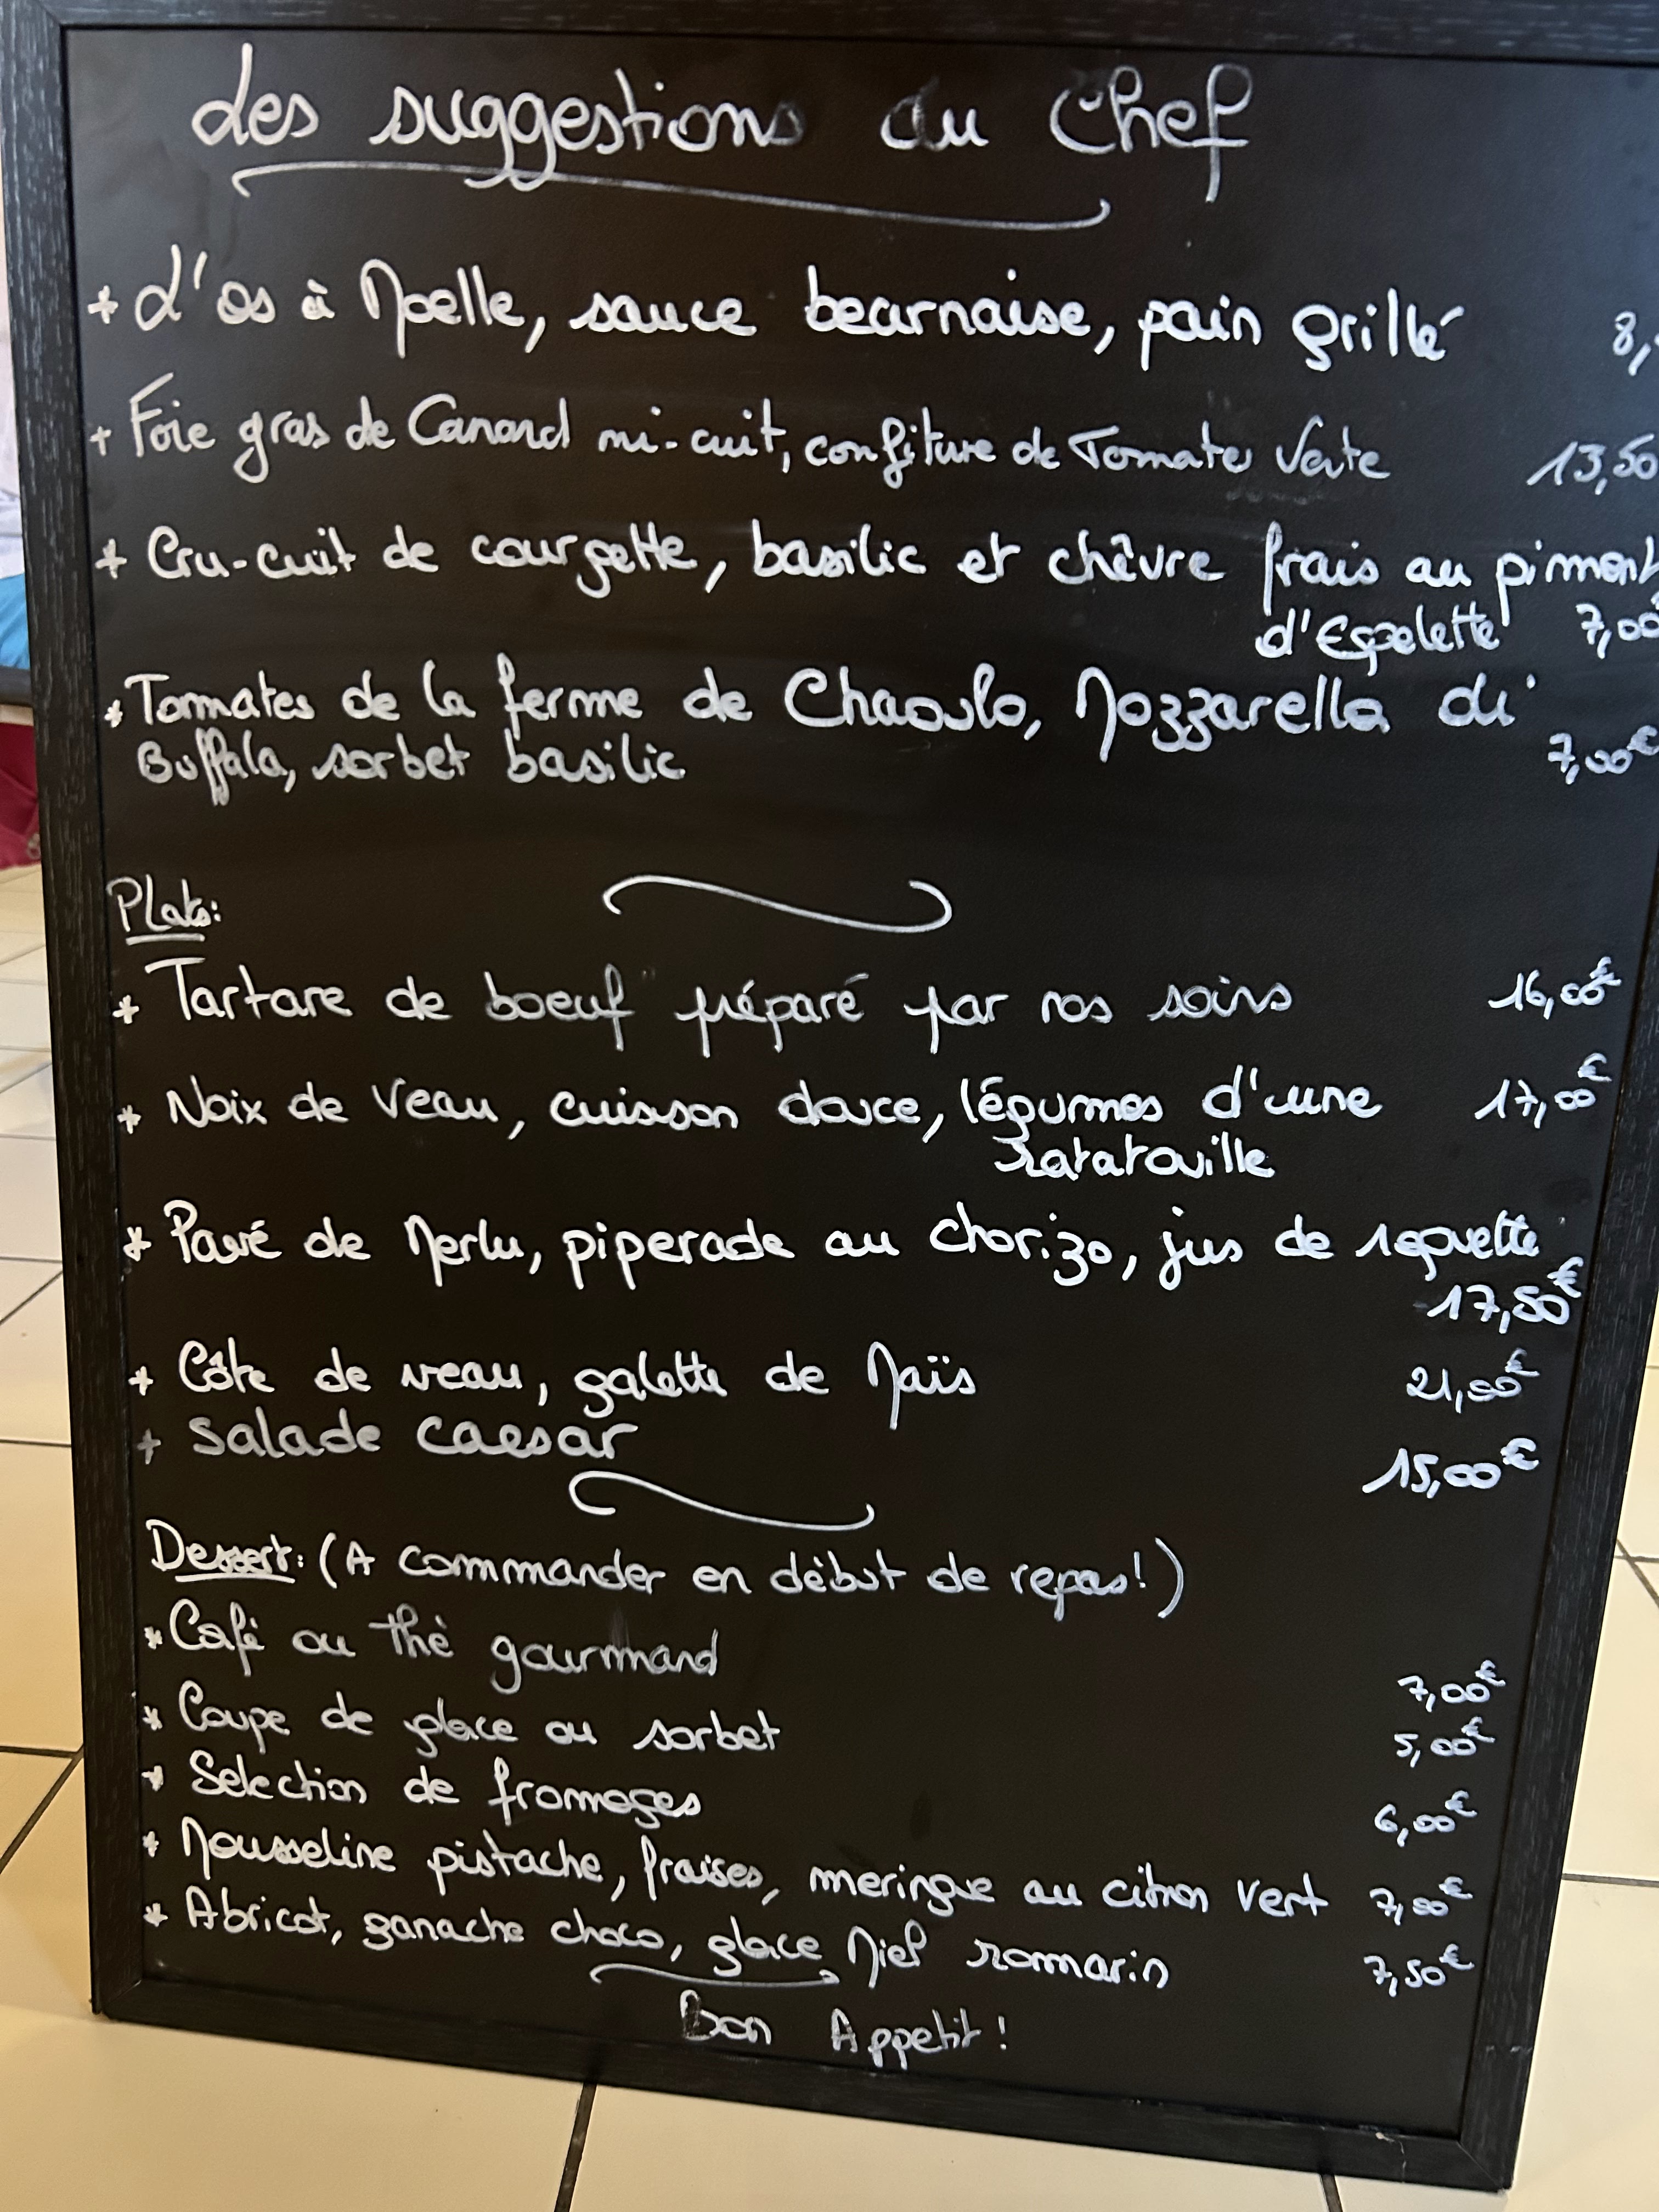 Les suggestions du Chef
* L'os à Moelle, sauce bearnaise, pain grillé 8,
+ Foie gras de Canard mi-cuit, confiture de Tomates Verte 13,50
+ Cru-cuit de courgette, basilic et chèvre frais au piment
d'Espelette 7,00€
* Tomates de la ferme de Chaoulo, Mozzarella di
Buffala, sorbet basilic 7,00€
Plats:
* Tartare de boeuf préparé par nos soins 16,00€
* Noix de Veau, cuisson douce, légumes d'une 17,00€
ratatouille
* Pavé de Merlu, piperade au chorizo, jus de roquette
17,50€
+ Côte de veau, galette de Maïs 21,00€
+ Salade caesar 15,00€
Dessert: (A commander en début de repas!)
* Café ou thé gourmand 7,00€
* Coupe de glace ou sorbet 5,00€
* Selection de fromages 6,00€
* Mousseline pistache, fraises, meringue au citron vert 7,50€
* Abricot, ganache choco, glace Miel romarin 7,50€
Bon Appetit!